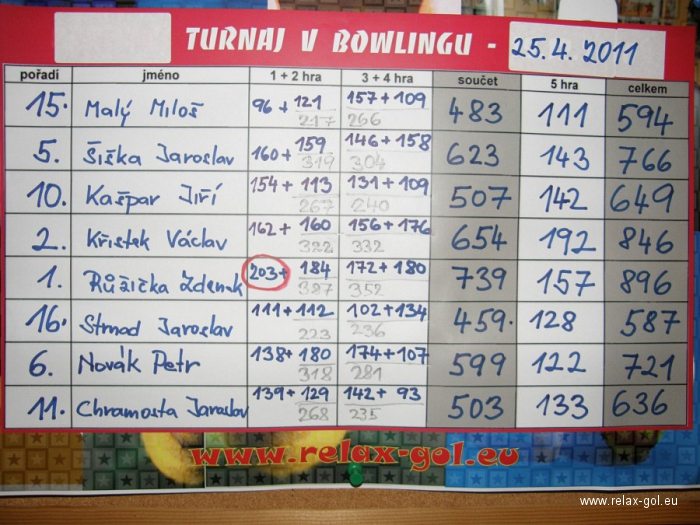 TURNAJ V BOWLINGU - 25.4. 2011
pořadí jméno 1 + 2 hra 3 + 4 hra součet 5 hra celkem
15. Malý Miloš 96 + 121 157 + 109 483 111 594
217 266
5. Šiška Jaroslav 160 + 159 146 + 158 623 143 766
319 304
10. Kašpar Jiří 154 + 113 131 + 109 507 142 649
267 240
2. Křistek Václav 162 + 160 156 + 176 654 192 846
322 332
1. Růžička Zdenek 203 + 184 172 + 180 739 157 896
387 352
16. Strnad Jaroslav 111 + 112 102 + 134 459. 128 587
223 236
6. Novák Petr 138 + 180 174 + 107 599 122 721
318 281
11. Chramosta Jaroslav 139 + 129 142 + 93 503 133 636
268 235
www.relax-gol.eu
www.relax-gol.eu